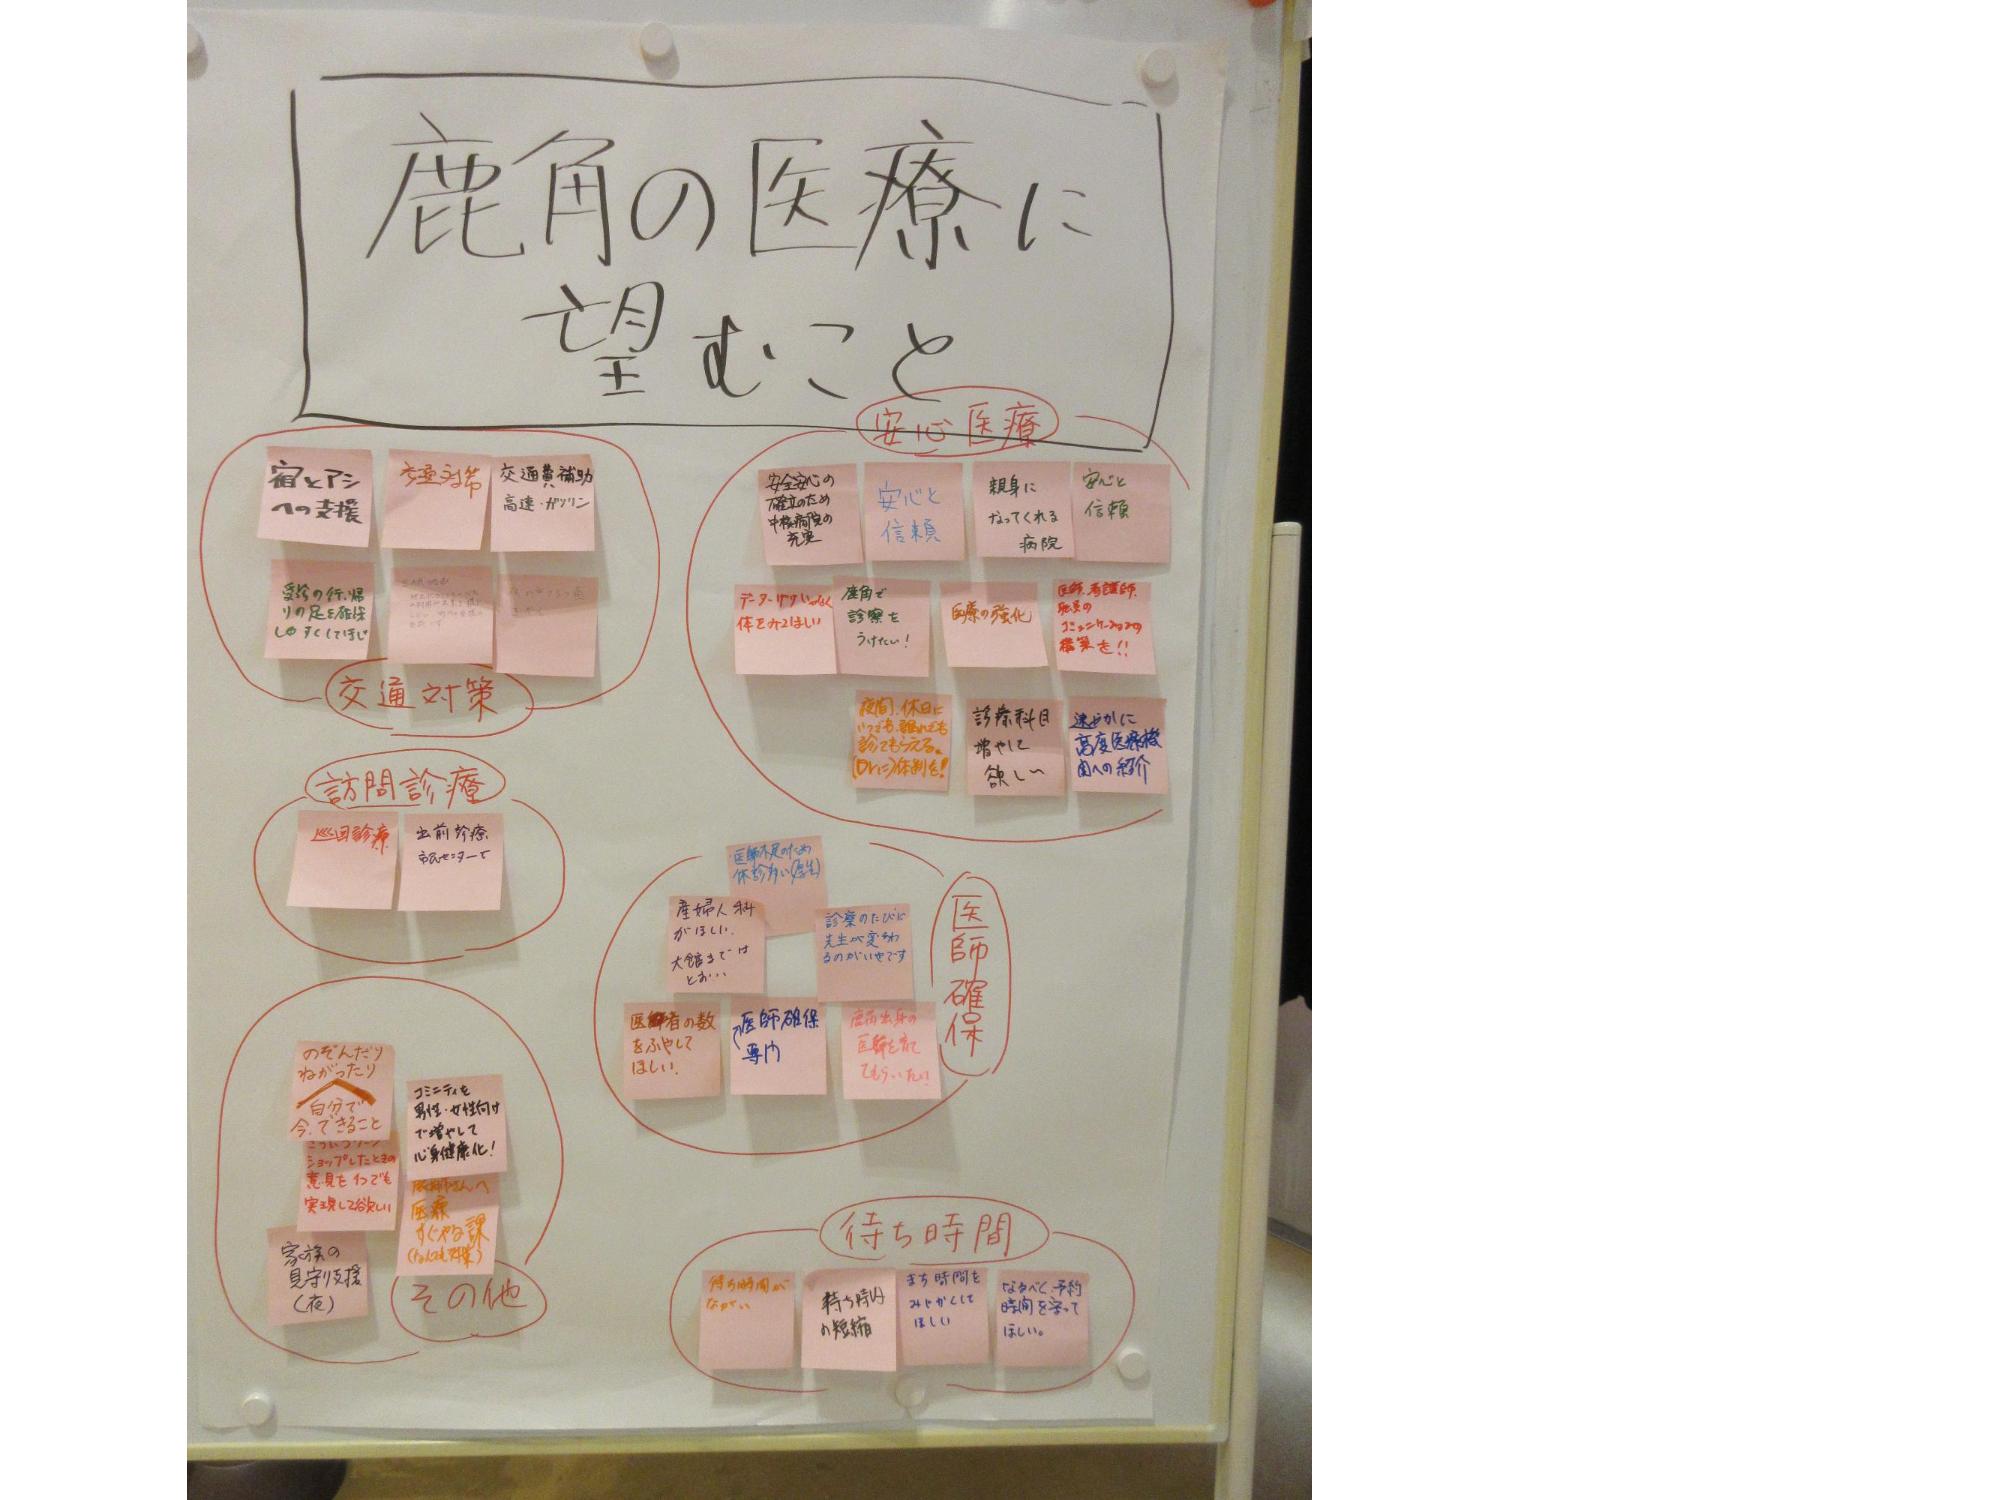 鹿角の医療に
望むこと
交通対策
宿とアシ
への支援
交通対策
交通費補助
高速・ガソリン
受診の行、帰
りの足を確保
しやすくしてほし
安心医療
安全安心の
確立のため
中核病院の
充実
安心と
信頼
親身に
なってくれる
病院
安心と
信頼
体をみてほしい
鹿角で
診察を
うけたい!
医療の強化
医師、看護師、
職員の
コミュニケーションの
構築を!!
夜間、休日に
いつでも、誰れでも
診てもらえる。
(Drに)体制を!
診療科目
増やして
欲しい
速やかに
高度医療機
関への紹介
訪問診療
巡回診療
出前診療
市民センターで
医師確保
医師不足のため
休診多い(厚生)
産婦人科
がほしい。
大館までは
とお…
診察のたびに
先生が変わ
るのがいやです
医療者の数
をふやして
ほしい。
医師確保
専門
鹿角出身の
医師を育て
てもらいたい
その他
のぞんだり
ねがったり
自分で
今、できること
ショップしたときの
意見を1つでも
実現して欲しい
コミニティを
男性・女性向け
で増やして
心身健康化!
医療
すぐやる課
家族の
見守り支援
(夜)
待ち時間
待ち時間が
ながい
待ち時間
の短縮
まち時間を
みじかくして
ほしい
なるべく予約
時間を守って
ほしい。